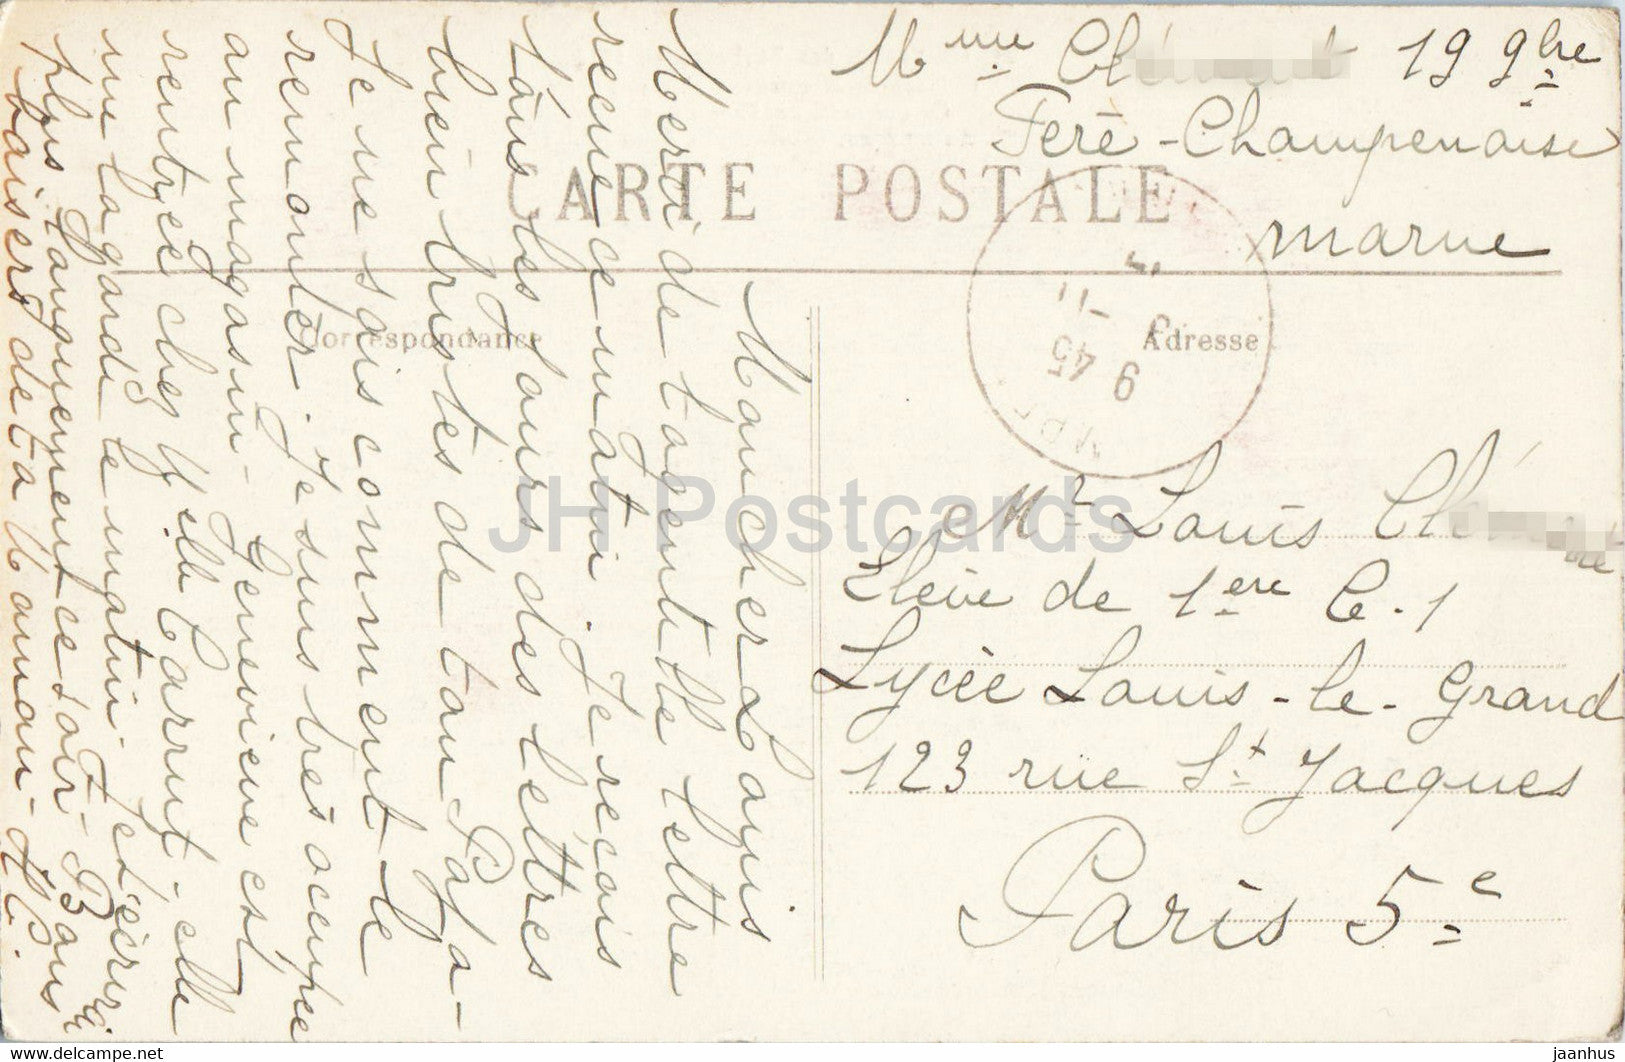 Mme 19 9bre
Fère-Champenoise
Marne
CARTE POSTALE
Correspondance
Adresse
9 45
11
Mr Louis
Elève de 1ère C.1
Lycée Louis-le-Grand
123 rue St Jacques
Paris 5e
Mon cher Louis
Merci de ta gentille lettre
reçue ce matin. Je reçois
tous les jours des lettres
bien tristes de ton Papa-
Je ne sais comment le
remonter. Je suis très occupée
au magasin- Geneviève est
rentrée chez Melle Carrut- elle
me l'a gardé le matin. Je t'écrirai
plus longuement ce soir- Bons
baisers de ta Maman-
JH Postcards
Visit: www.delcampe.net
jaanhus